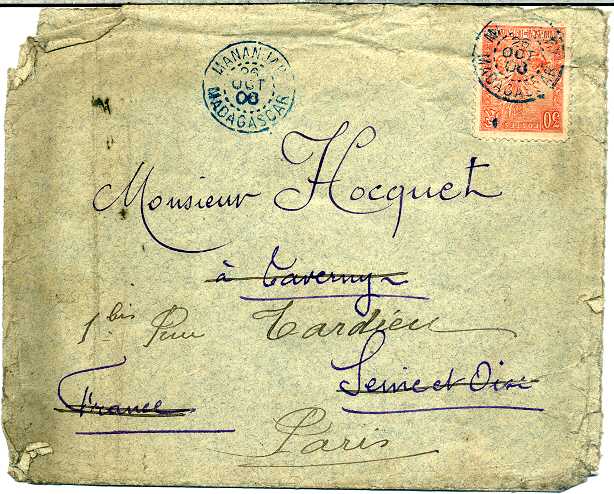 MANANJARY
26
OCT
08
MADAGASCAR
26
OCT
08
MADAGASCAR
30
POSTES
Monsieur Hocquet
à Taverny
1 bis Rue Tardieu
Seine et Oise
France
Paris